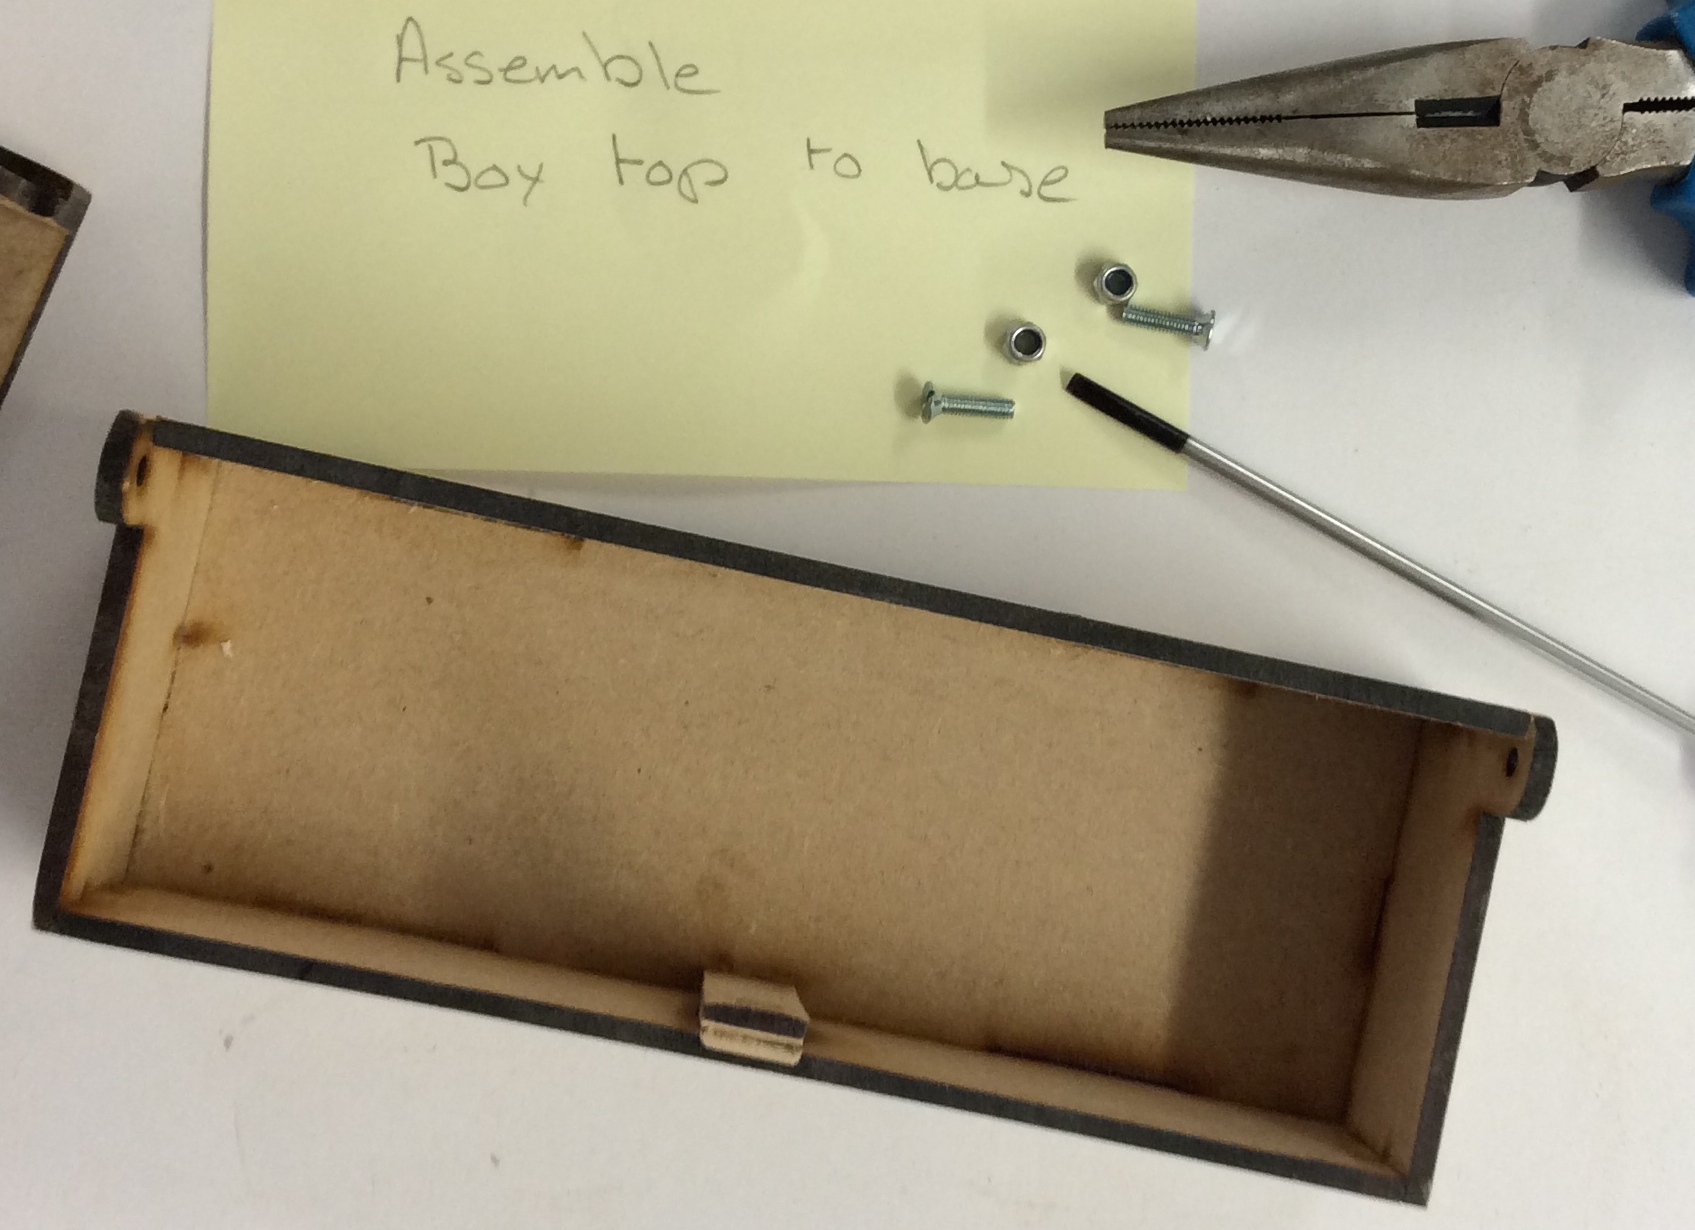 Assemble
Box top to base